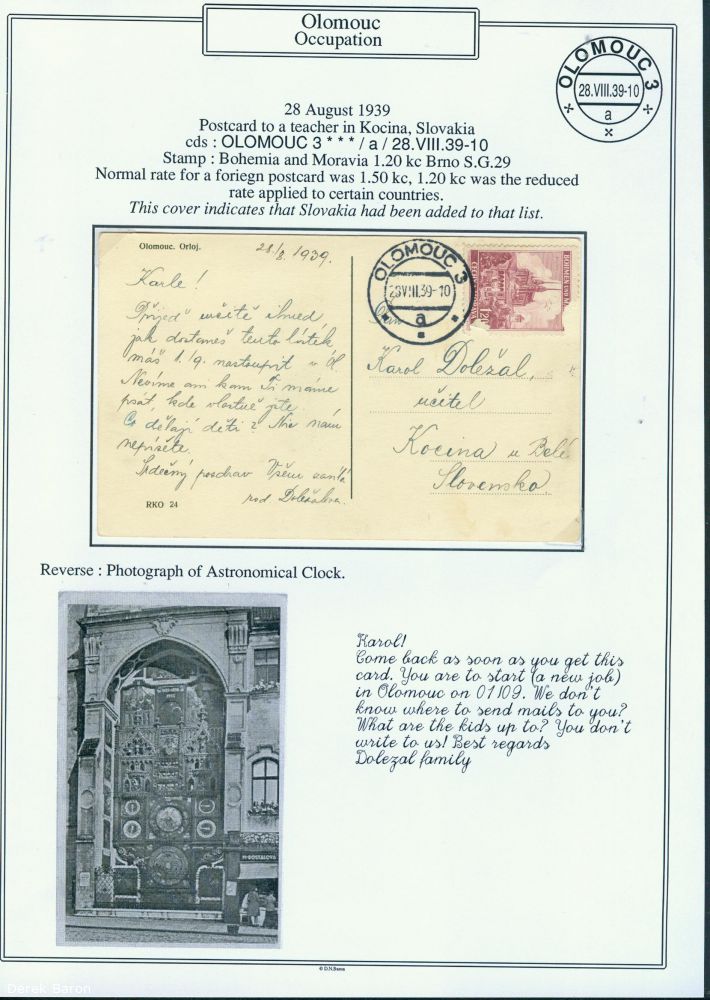 Olomouc
Occupation
OLOMOUC 3
28.VIII.39-10
a
28 August 1939
Postcard to a teacher in Kocina, Slovakia
cds : OLOMOUC 3 * * * / a / 28.VIII.39-10
Stamp : Bohemia and Moravia 1.20 kc Brno S.G.29
Normal rate for a foriegn postcard was 1.50 kc, 1.20 kc was the reduced
rate applied to certain countries.
This cover indicates that Slovakia had been added to that list.
Olomouc. Orloj.
28/8. 1939.
OLOMOUC 3
28VIII.39-10
a
Karle!
Přijeď určitě ihned
jak dostaneš tento lístek
máš 1./9. nastoupit v Ol.
Nevíme ani kam Ti máme
psát, kde vlastně jste.
Co dělají děti? Nic nám
nepíšete.
Srdečný pozdrav Všem
rod Doležalova.
RKO 24
Karol Doležal,
učitel
Kocina u Belé
Slovensko
Reverse : Photograph of Astronomical Clock.
Karol!
Come back as soon as you get this
card. You are to start (a new job)
in Olomouc on 01/09. We don't
know where to send mails to you?
What are the kids up to? You don't
write to us! Best regards
Dolezal family
© D.N.Baron
Derek Baron